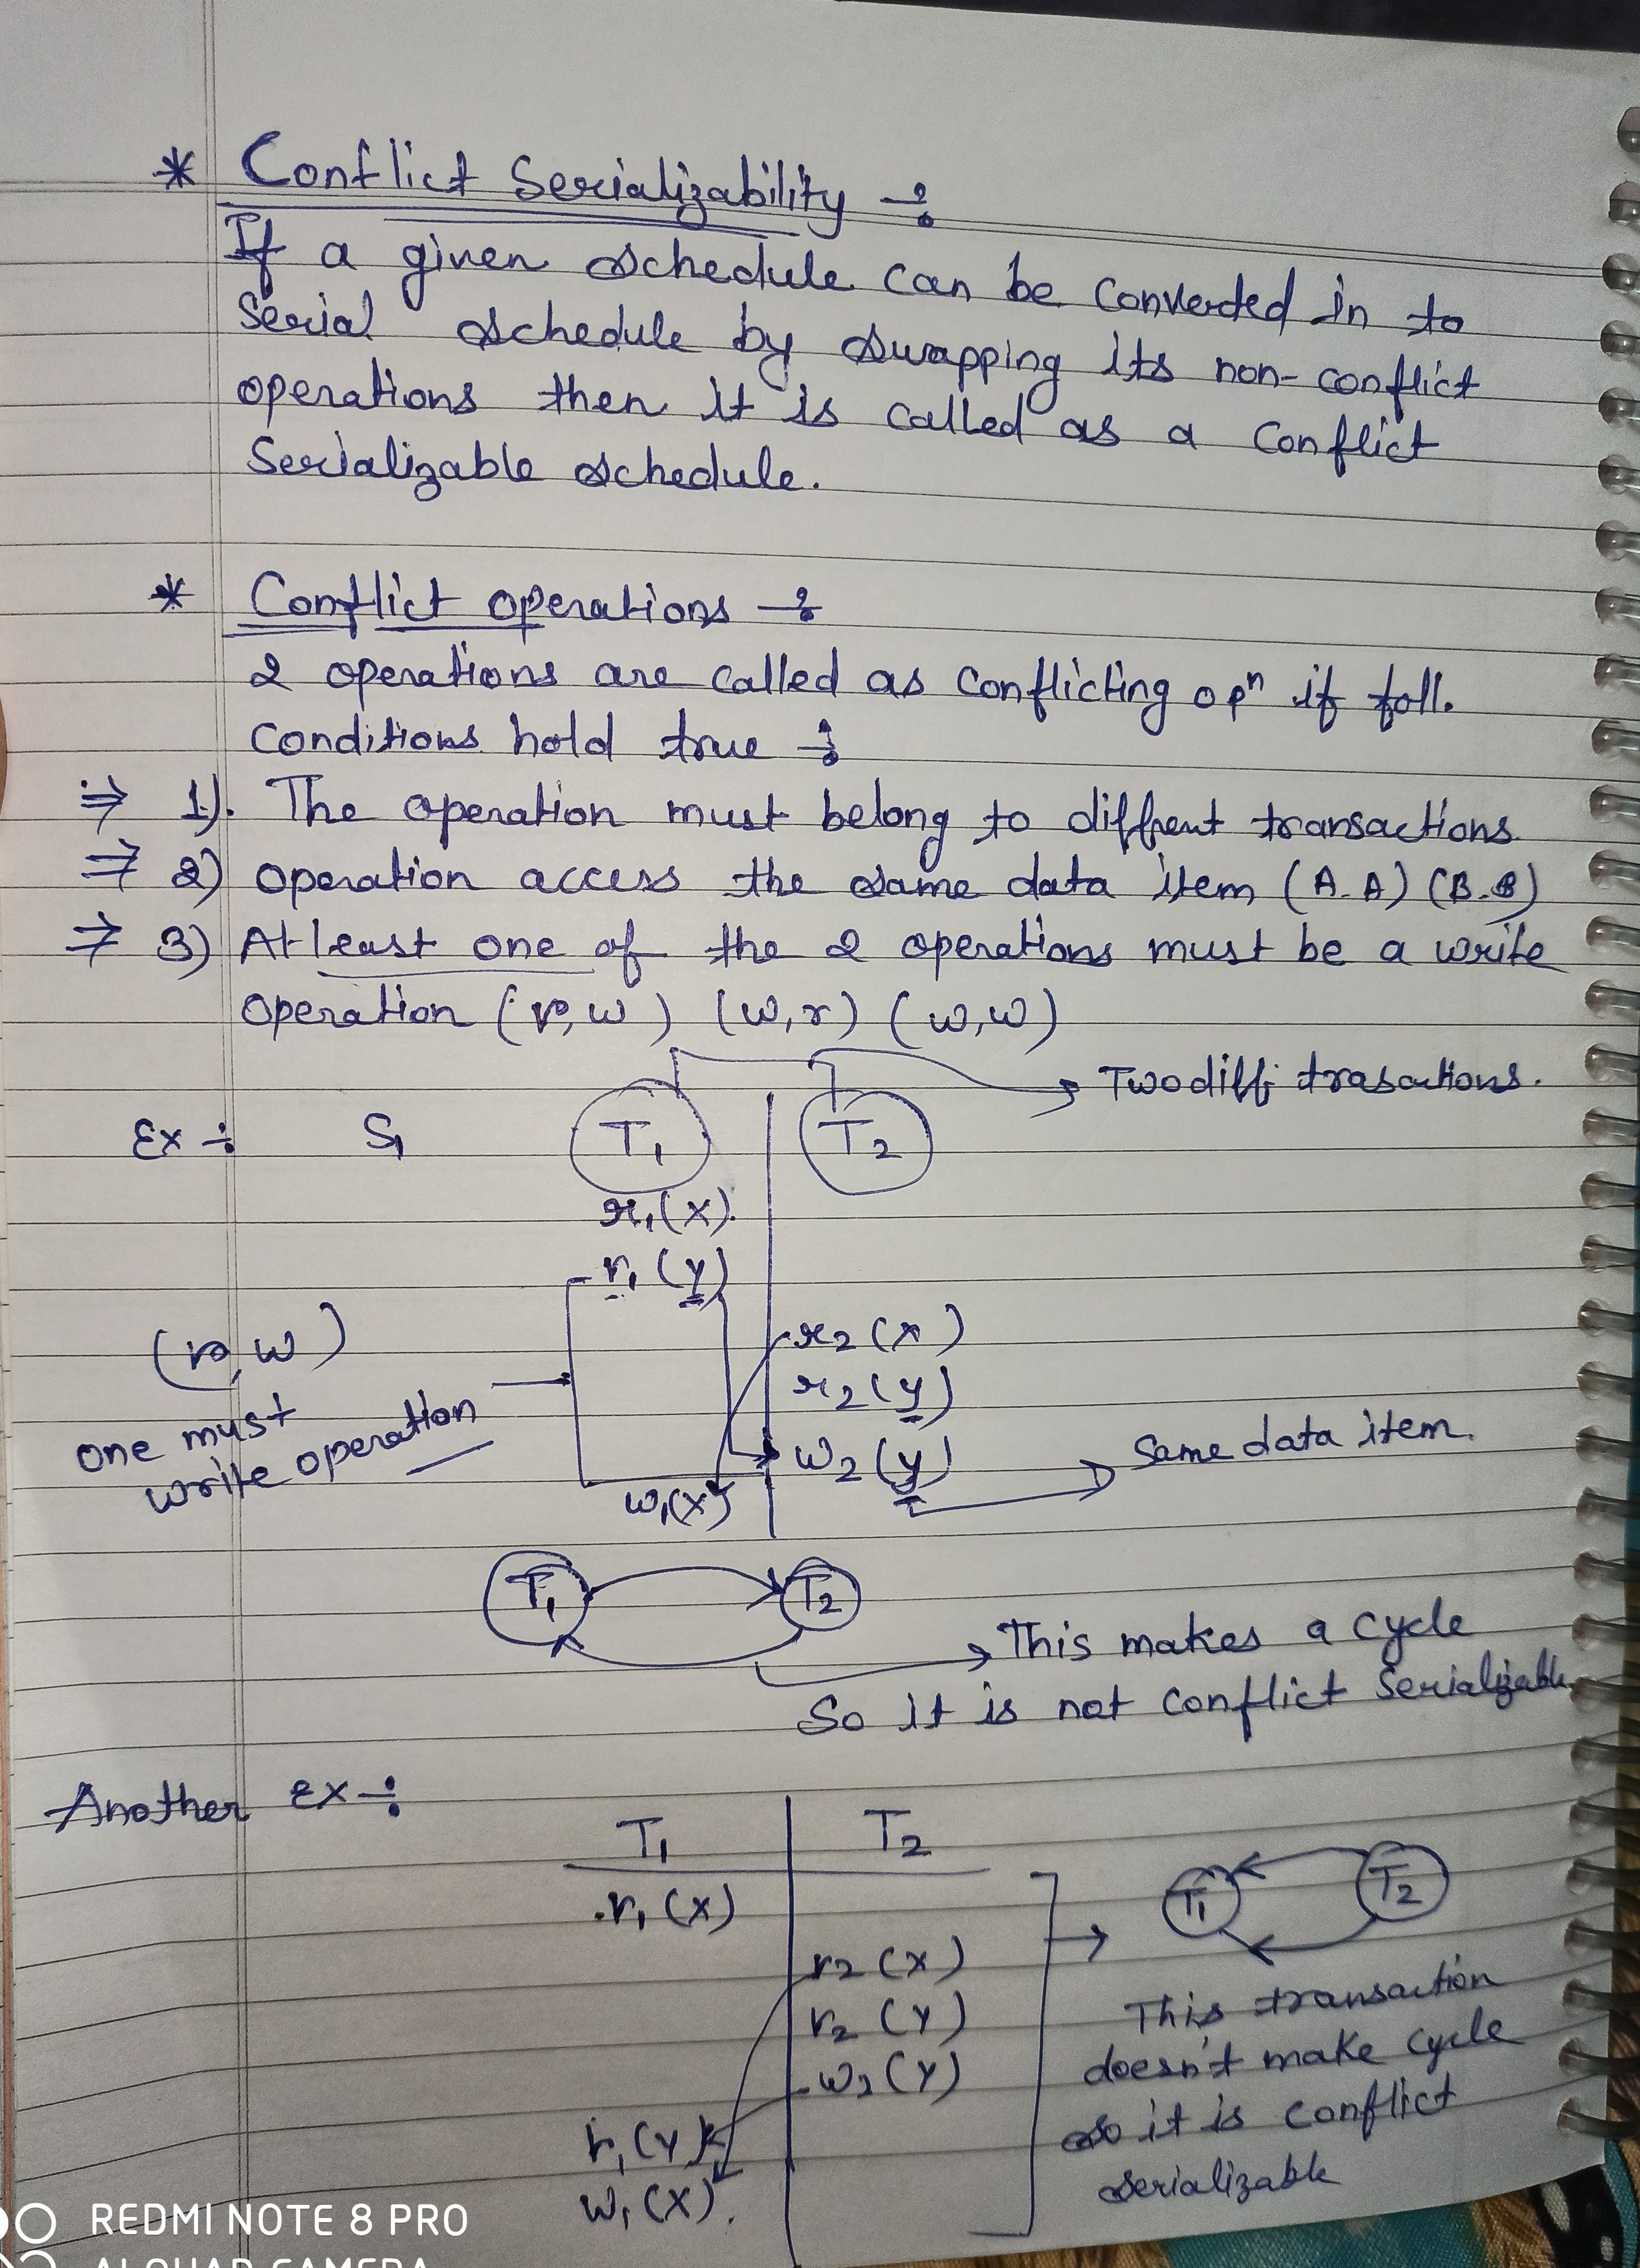 * Conflict Serializability :-
If a given schedule can be converted in to
Serial schedule by swapping its non-conflict
operations then it is called as a Conflict
Serializable schedule.
* Conflict operations :-
2 operations are called as Conflicting opⁿ if foll.
Conditions hold true :-
⇒ 1). The operation must belong to diffrent transactions.
⇒ 2) operation access the same data item (A-A) (B-B)
⇒ 3) Atleast one of the 2 operations must be a write
operation (r, w) (w,r) (w,w)
→ Two diff trasactions.
Ex :- S₁ T₁ T₂
r₁(x).
r₁(y)
(r, w) r₂(x)
r₂(y)
one must
write operation
w₂(y) → Same data item.
w₁(x)
T₁ T₂
→ This makes a cycle
So it is not conflict Serializable
Another Ex :-
T₁ T₂
r₁(x)
T₁ T₂
r₂(x)
r₂(y)
w₂(y)
This transaction
doesn't make cycle
so it is conflict
serializable
r₁(y)
w₁(x).
REDMI NOTE 8 PRO
AI QUAD CAMERA